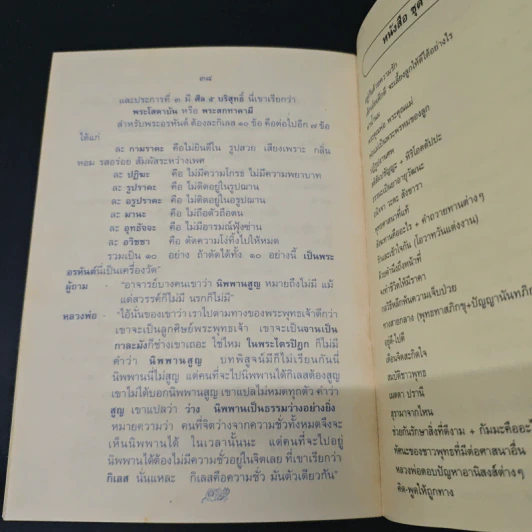 ๓๘
และประการที่ ๓. มี ศีล ๕ บริสุทธิ์ นี่เขาเรียกว่า
พระโสดาบัน หรือ พระสกทาคามี
สำหรับพระอรหันต์ ต้องละกิเลส ๑๐ ข้อ คือต่อไปอีก ๗ ข้อ
ได้แก่
ละ กามราคะ คือไม่ยินดีใน รูปสวย เสียงเพราะ กลิ่น
หอม รสอร่อย สัมผัสระหว่างเพศ
ละ ปฏิฆะ คือ ไม่มีความโกรธ ไม่มีความพยาบาท
ละ รูปราคะ คือ ไม่ติดอยู่ในรูปฌาน
ละ อรูปราคะ คือ ไม่ติดอยู่ในอรูปฌาน
ละ มานะ คือ ไม่ถือตัวถือตน
ละ อุทธัจจะ คือ ไม่มีอารมณ์ฟุ้งซ่าน
ละ อวิชชา คือ ตัดความโง่ทิ้งไปให้หมด
รวมเป็น ๑๐ อย่าง ถ้าตัดได้ทั้ง ๑๐ อย่างนี้ เป็นพระ
อรหันต์นี่เป็นเครื่องวัด"
ผู้ถาม "อาจารย์บางคนเขาว่า นิพพานสูญ หมายถึงไม่มี แม้
แต่สวรรค์ก็ไม่มี นรกก็ไม่มี"
หลวงพ่อ "ไอ้นั่นของเขาว่า เราไปตามทางของพระพุทธเจ้าดีกว่า
เขาจะเป็นลูกศิษย์พระพุทธเจ้า เขาจะเป็นจานเป็น
กาละมังก็ช่างเขาเถอะ ใช่ไหม ในพระไตรปิฎก ก็ไม่มี
คำว่า นิพพานสูญ บทพิสูจน์มีก็ไม่เรียนกันนี่
นิพพานนี่ไม่สูญ แต่คนที่จะไปนิพพานได้กิเลสต้องสูญ
เขาไม่ได้บอกนิพพานสูญ เขาแปลไม่หมดทุกตัว คำว่า
สูญ เขาแปลว่า ว่าง นิพพานเป็นธรรมว่างอย่างยิ่ง
หมายความว่า คนที่จิตว่างจากความชั่วทั้งหมดจึงจะ
เห็นนิพพานได้ ในเวลานั้นนะ แต่คนที่จะไปอยู่
นิพพานได้ต้องไม่มีความชั่วอยู่ในจิตเลย ที่เขาเรียกว่า
กิเลส นั่นแหละ กิเลสคือความชั่ว มันตัวเดียวกัน"
หนังสือ ชุด
พุทธศาสนาที่แท้
เตือนจิตสะกิดใจ
สมบัติชาวพุทธ
เมตตา ปรานี
สุรามาจากไหน
ช่วยกันรักษาสิ่งที่ดีงาม + กัมมะคืออะ
ทัศนะของชาวพุทธที่มีต่อศาสนาอื่น
หลวงพ่อตอบปัญหาอานิสงส์ต่างๆ
คิด-พูดให้ถูกทาง